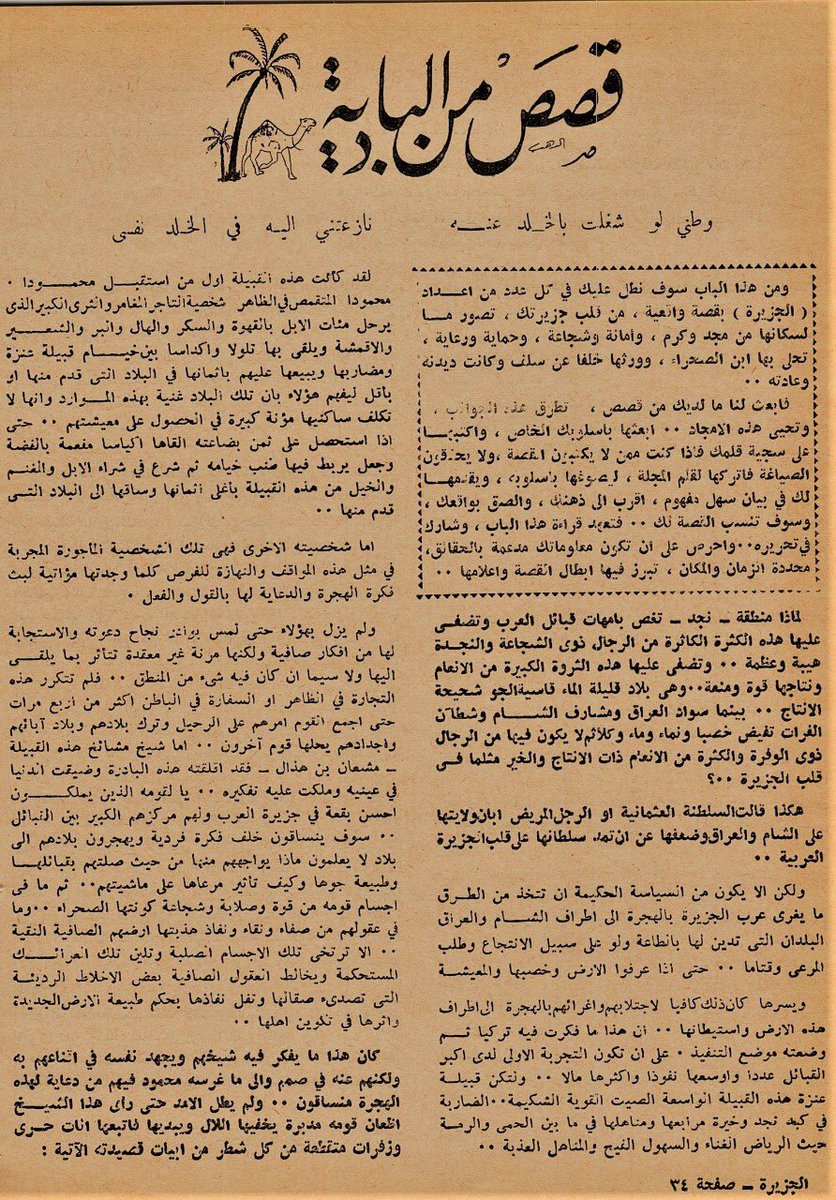 قصص من البادية
وطني لو شغلت بالخلد عنه نازعتني اليه في الخلد نفسي
ومن هذا الباب سوف نطل عليك في كل عدد من اعداد
( الجزيرة ) بقصة واقعية ، من قلب جزيرتك ، تصور ما
لسكانها من مجد وكرم ، وأمانة وشجاعة ، وحماية ورعاية ،
تحلى بها ابن الصحراء ، وورثها خلفا عن سلف وكانت ديدنه
وعادته ٠٠
فابعث لنا ما لديك من قصص ، تطرق هذه الجوانب ،
وتحيي هذه الامجاد ٠٠ ابعثها باسلوبك الخاص ، واكتبها
على سجية قلمك فاذا كنت ممن لا يكتبون القصة ،ولا يحذقون
الصياغة فاتركها لقلم المجلة ، ليصوغها باسلوبه ، ويقدمها
لك في بيان سهل مفهوم ، اقرب الى ذهنك ، والصق بواقعك ،
وسوف تنسب القصة لك ٠٠ فتعهد قراءة هذا الباب ، وشارك
في تحريره٠٠واحرص على ان تكون معلوماتك مدعمة بالحقائق،
محددة الزمان والمكان ، تبرز فيها ابطال القصة واعلامها ٠٠
لماذا منطقة ـ نجد ـ تغص بامهات قبائل العرب وتضفى
عليها هذه الكثرة الكاثرة من الرجال ذوى الشجاعة والنجدة
هيبة وعظمة ٠٠ وتضفى عليها هذه الثروة الكبيرة من الانعام
ونتاجها قوة ومنعة٠٠وهى بلاد قليلة الماء قاسية الجو شحيحة
الانتاج ٠٠ بينما سواد العراق ومشارف الشام وشطآن
الفرات تفيض خصبا ونماء وماء وكلأ ثم لا يكون فيها من الرجال
ذوى الوفرة والكثرة من الانعام ذات الانتاج والخير مثلما فى
قلب الجزيرة ٠٠؟
هكذا قالت السلطنة العثمانية او الرجل المريض ابان ولايتها
على الشام والعراق وضعفها عن ان تمد سلطانها على قلب الجزيرة
العربية ٠٠
ولكن الا يكون من السياسة الحكيمة ان تتخذ من الطرق
ما يغرى عرب الجزيرة بالهجرة الى اطراف الشام والعراق
البلدان التى تدين لها بالطاعة ولو على سبيل الانتجاع وطلب
المرعى وقتاما ٠٠ حتى اذا عرفوا الارض وخصبها والمعيشة
ويسرها كان ذلك كافيا لاجتلابهم واغرائهم بالهجرة الى اطراف
هذه الارض واستيطانها ٠٠ ان هذا ما فكرت فيه تركيا ثم
وضعته موضع التنفيذ ٠ على ان تكون التجربة الاولى لدى اكبر
القبائل عددا واوسعها نفوذا واكثرها مالا ٠٠ ولتكن قبيلة
عنزة هذه القبيلة الواسعة الصيت القوية الشكيمة٠٠الضاربة
في كبد نجد وخيرة مرابعها ومناهلها في ما بين الحمى والرمة
حيث الرياض الغناء والسهول الفيح والمناهل العذبة ٠٠
لقد كانت هذه القبيلة اول من استقبل محمودا ٠
محمودا المتقمص في الظاهر شخصية التاجر المغامر والثرى الكبير الذى
يرحل مئات الابل بالقهوة والسكر والهال والبر والشعير
والاقمشة ويلقى بها تلولا واكداسا بين خيام قبيلة عنزة
ومضاربها ويبيعها عليهم باثمانها في البلاد التى قدم منها او
بأقل ليفهم هؤلاء بان تلك البلاد غنية بهذه الموارد وانها لا
تكلف ساكنيها مؤنة كبيرة في الحصول على معيشتهم ٠٠ حتى
اذا استحصل على ثمن بضاعته القاها اكياسا مفعمة بالفضة
وجعل يربط فيها طنب خيامه ثم شرع في شراء الابل والغنم
والخيل من هذه القبيلة بأغلى أثمانها وساقها الى البلاد التى
قدم منها ٠٠
اما شخصيته الاخرى فهى تلك الشخصية المأجورة المجربة
في مثل هذه المواقف والنهازة للفرص كلما وجدتها مؤاتية لبث
فكرة الهجرة والدعاية لها بالقول والفعل ٠
ولم يزل بهؤلاء حتى لمس بوادر نجاح دعوته والاستجابة
لها من افكار صافية ولكنها مرنة غير معقدة تتأثر بما يلقى
اليها ولا سيما ان كان فيه شىء من المنطق ٠٠ فلم تتكرر هذه
التجارة في الظاهر او السفارة في الباطن اكثر من اربع مرات
حتى اجمع القوم امرهم على الرحيل وترك بلادهم وبلاد آبائهم
واجدادهم يحلها قوم آخرون ٠٠ اما شيخ مشائخ هذه القبيلة
ـ مشعان بن هذال ـ فقد اقلقته هذه البادرة وضيقت الدنيا
في عينيه وملكت عليه تفكيره ٠٠ يا لقومه الذين يملكون
احسن بقعة في جزيرة العرب ولهم مركزهم الكبير بين القبائل
٠٠ سوف ينساقون خلف فكرة فردية ويهجرون بلادهم الى
بلاد لا يعلمون ماذا يواجههم منها من حيث صلتهم بقبائلها
وطبيعة جوها وكيف تأثير مرعاها على ماشيتهم٠٠ ثم ما فى
اجسام قومه من قوة وصلابة وشجاعة كونتها الصحراء ٠٠وما
في عقولهم من صفاء ونقاء ونفاذ هذبتها ارضهم الصافية النقية
٠٠ الا ترتخى تلك الاجسام الصلبة وتلين تلك العرائك
المستحكمة ويخالط العقول الصافية بعض الاخلاط الرديئة
التى تصدىء صقالها وتفل نفاذها بحكم طبيعة الارض الجديدة
واثرها في تكوين اهلها ٠٠
كان هذا ما يفكر فيه شيخهم ويجهد نفسه في اقناعهم به
ولكنهم عنه في صمم والى ما غرسه محمود فيهم من دعاية لهذه
الهجرة منساقون ٠٠ ولم يطل الامد حتى رأى هذا الشيخ
اظعان قومه مدبرة يخفيها اللال ويبديها فاتبعها انات حرى
وزفرات متقطعة من كل شطر من ابيات قصيدته الآتية :
الجزيرة ـ صفحة ٣٤